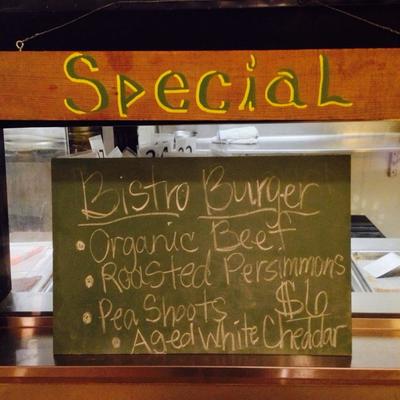 Special
Bistro Burger
• Organic Beef
• Roasted Persimmons
• Pea Shoots $6
• Aged White Cheddar